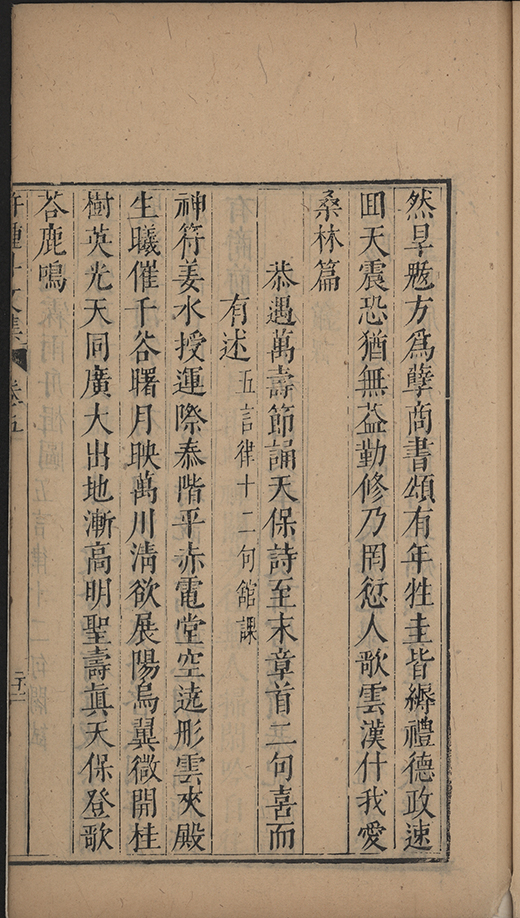 然旱魃方為孽商書頌有年牲圭皆縟禮德政速
回天震恐猶無益勤修乃罔愆人歌雲漢什我愛
桑林篇
恭遇萬壽節誦天保詩至末章首二句喜而
有述五言律十二句館課
神符姜水授運際泰階平赤電堂空遶彤雲夾殿
生曦催千谷曙月映萬川淸欲展陽烏翼微開桂
樹英光天同廣大出地漸高明聖壽眞天保登歌
荅鹿鳴
許鍾斗文集 卷五